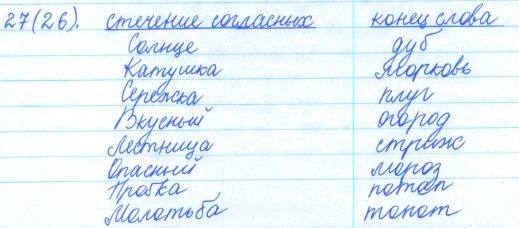 27(26). стечение согласных конец слова
Солнце дуб
Катушка Морковь
Сережка плуг
Вкусный огород
Лестница стриж
Опасный мороз
Пробка потоп
Молотьба топот